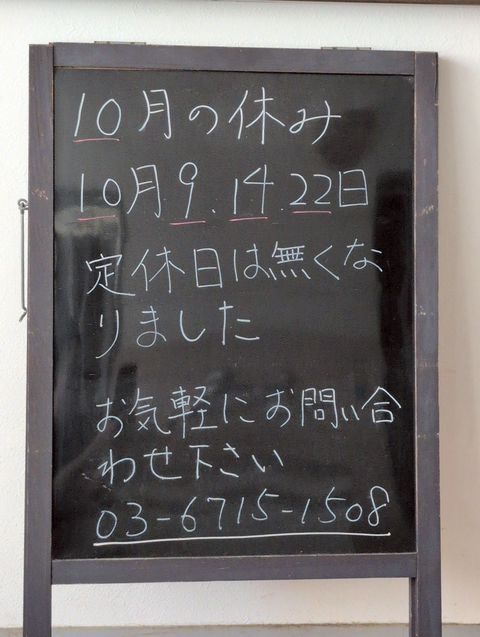 10月の休み
10月9.14.22日
定休日は無くな
りました
お気軽にお問い合
わせ下さい
03-6715-1508